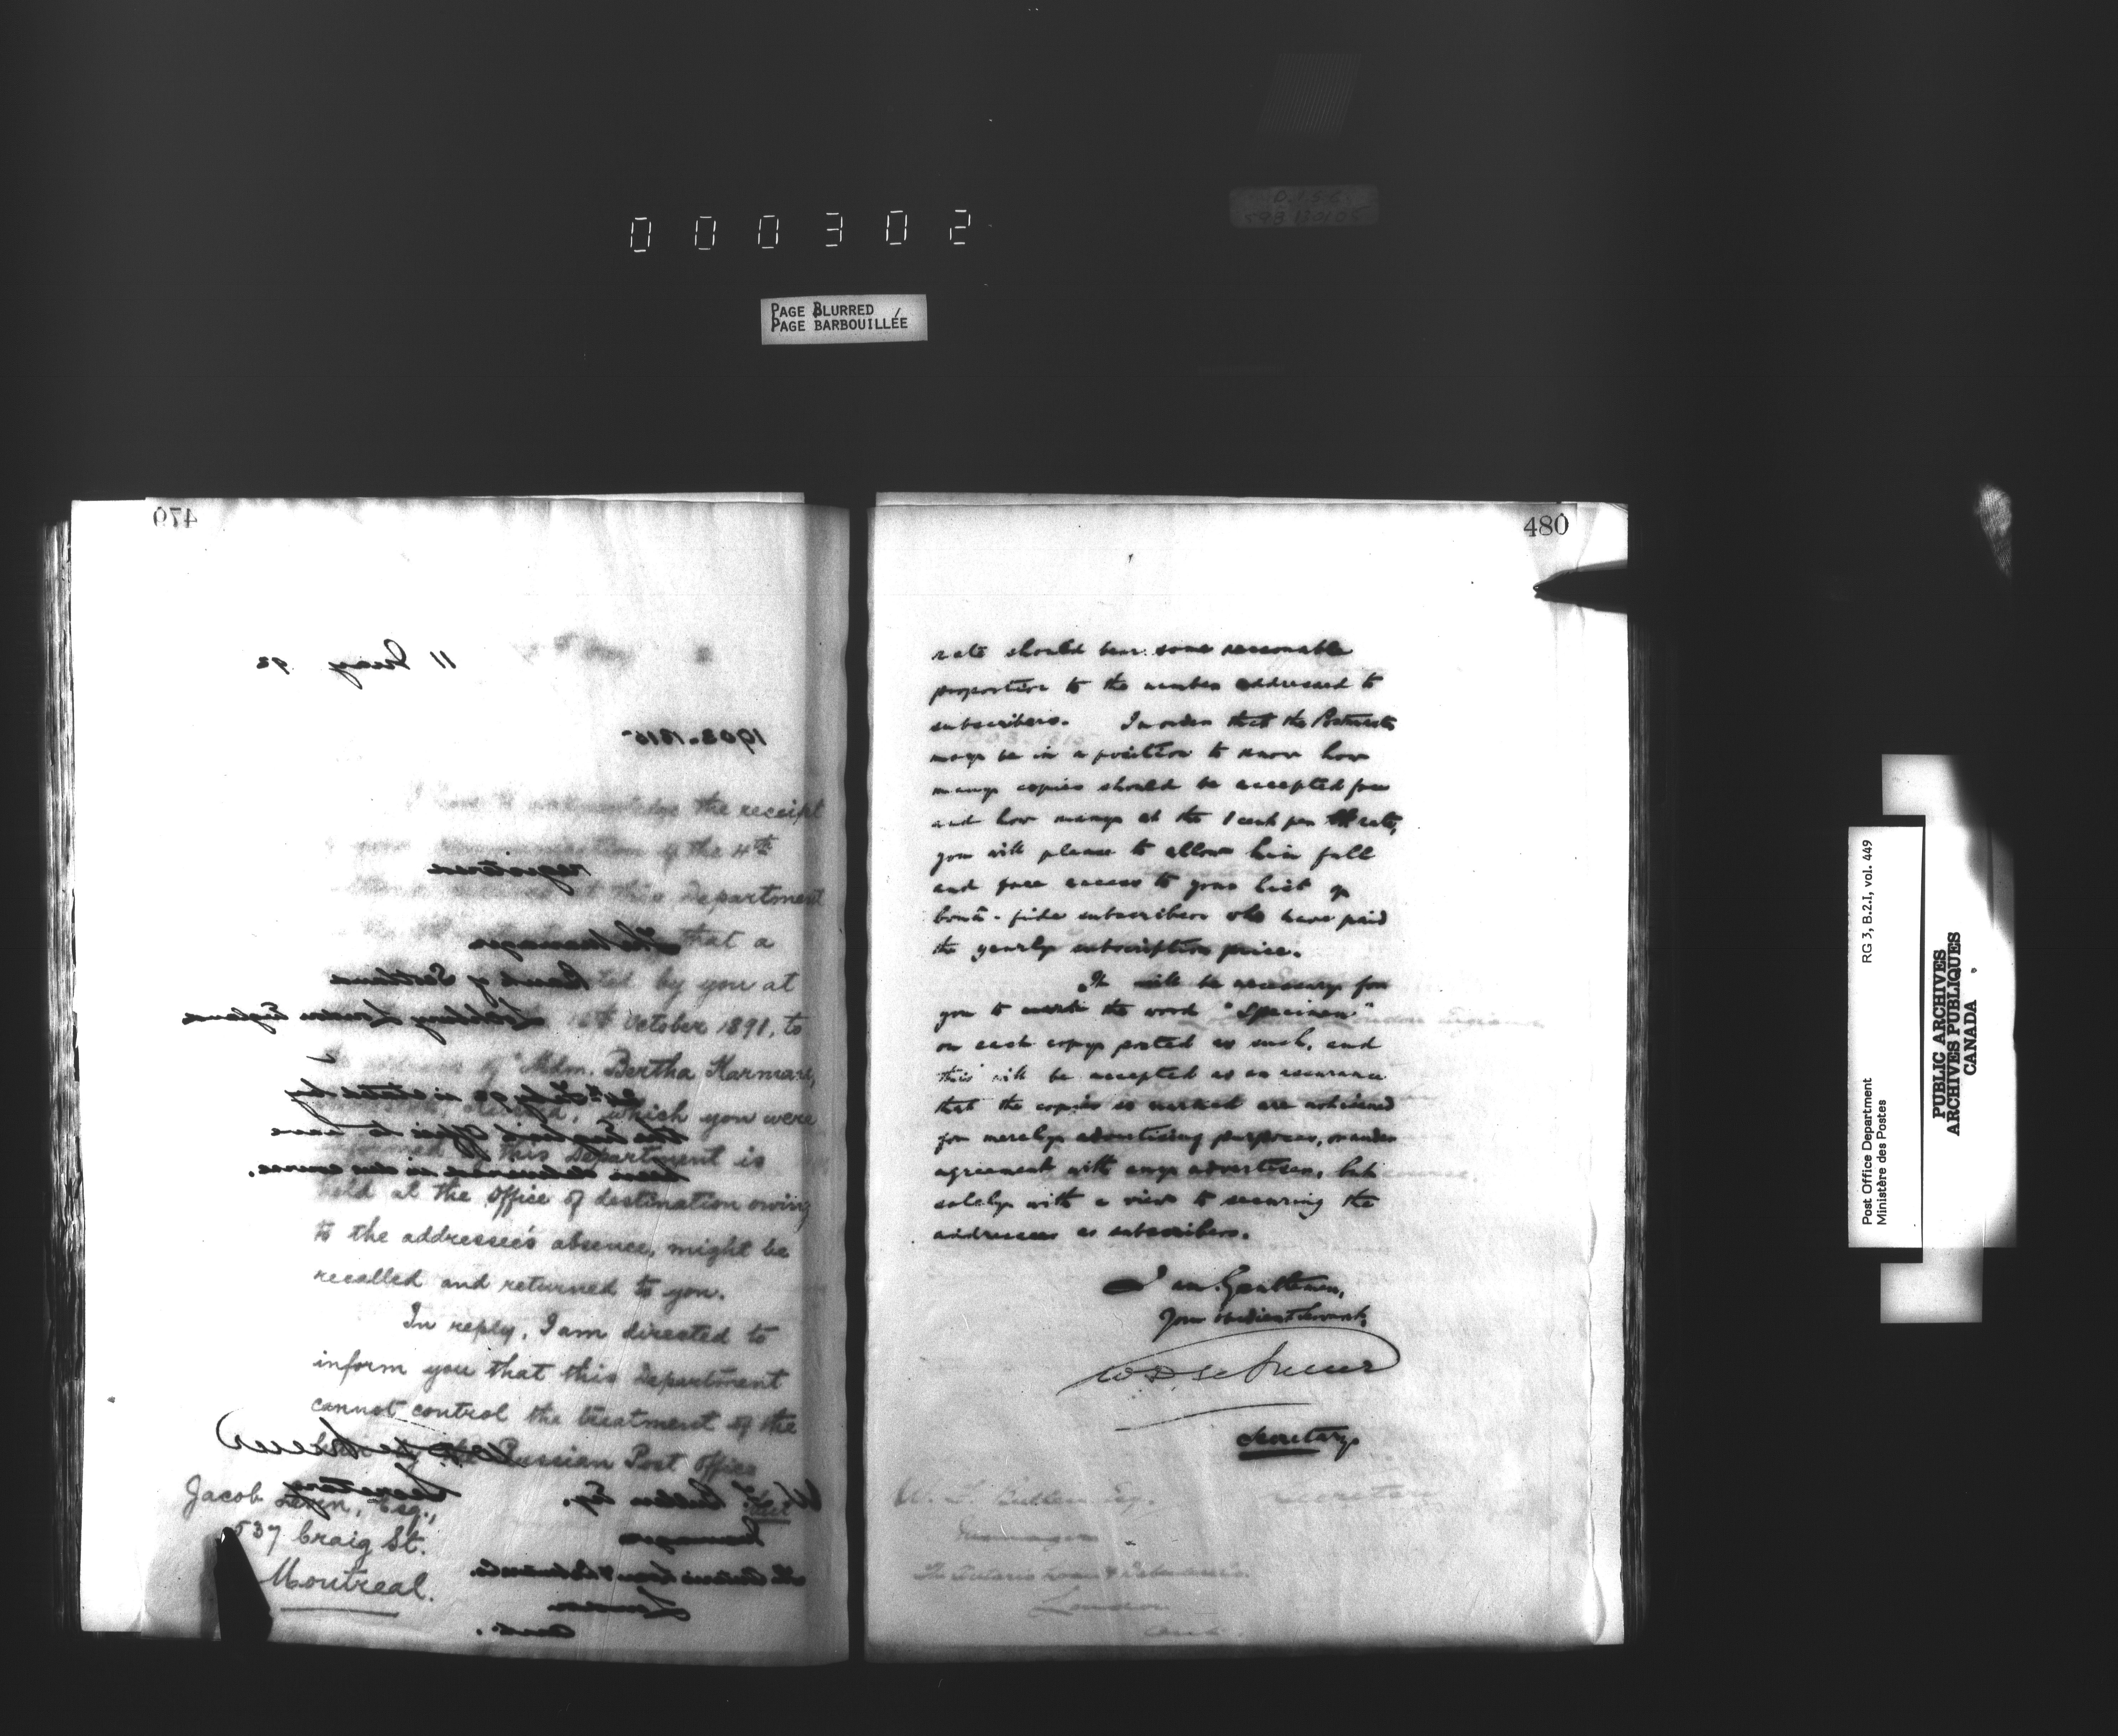 000302
PAGE BLURRED
PAGE BARBOUILLÉE
479
11 May 92
1903-1815
the receipt
of the 4th
registered
this Department
The Manager
that a
Bank of Scotland
by you at
Lothbury London England
October 1891, to
Mdm. Bertha Harmare,
24th Feby 92 is stated by
which you were
the English Office to have
informed this Department is
been delivered in due course.
held at the office of destination owing
to the addressee's absence, might be
recalled and returned to you.
In reply, I am directed to
inform you that this Department
cannot control the treatment of the
Russian Post Office
Secretary
Jacob Levin, Esq.,
537 Craig St.
Montreal.
W. F. Bullen Esq.
Manager
The Ontario Loan & Debenture Co.
London
Ont.
480
rate should bear some reasonable
proportion to the number addressed to
subscribers. In order that the Postmaster
may be in a position to know how
many copies should be accepted free
and how many at the 1 cent per lb rate,
you will please to allow him full
and free access to your list of
bonâ-fide subscribers who have paid
the yearly subscription price.
It will be necessary for
you to mark the word "Specimen"
on each copy posted as such, and
this will be accepted as an assurance
that the copies so marked are not issued
for merely advertising purposes, or under
agreement with any advertiser, but
solely with a view to securing the
addressees as subscribers.
I am, Gentlemen,
Your obedient Servant,
W D LeSueur
Secretary
Post Office Department
Ministère des Postes
RG 3, B.2.I, vol. 449
PUBLIC ARCHIVES
ARCHIVES PUBLIQUES
CANADA